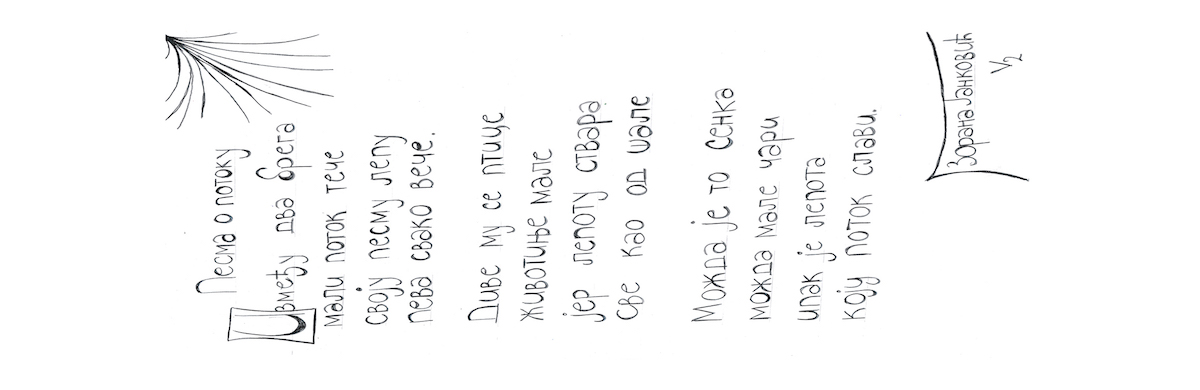 Песма о потоку
Извмеђу два брега
мали поток тече
своју песму лепу
пева свако вече.
Диве му се птице
животиње мале
јер лепоту ствара
све као од шале
Можда је то сенка
можда мале чари
ипак је лепота
коју поток слави.
Зорана Јанковић
V2